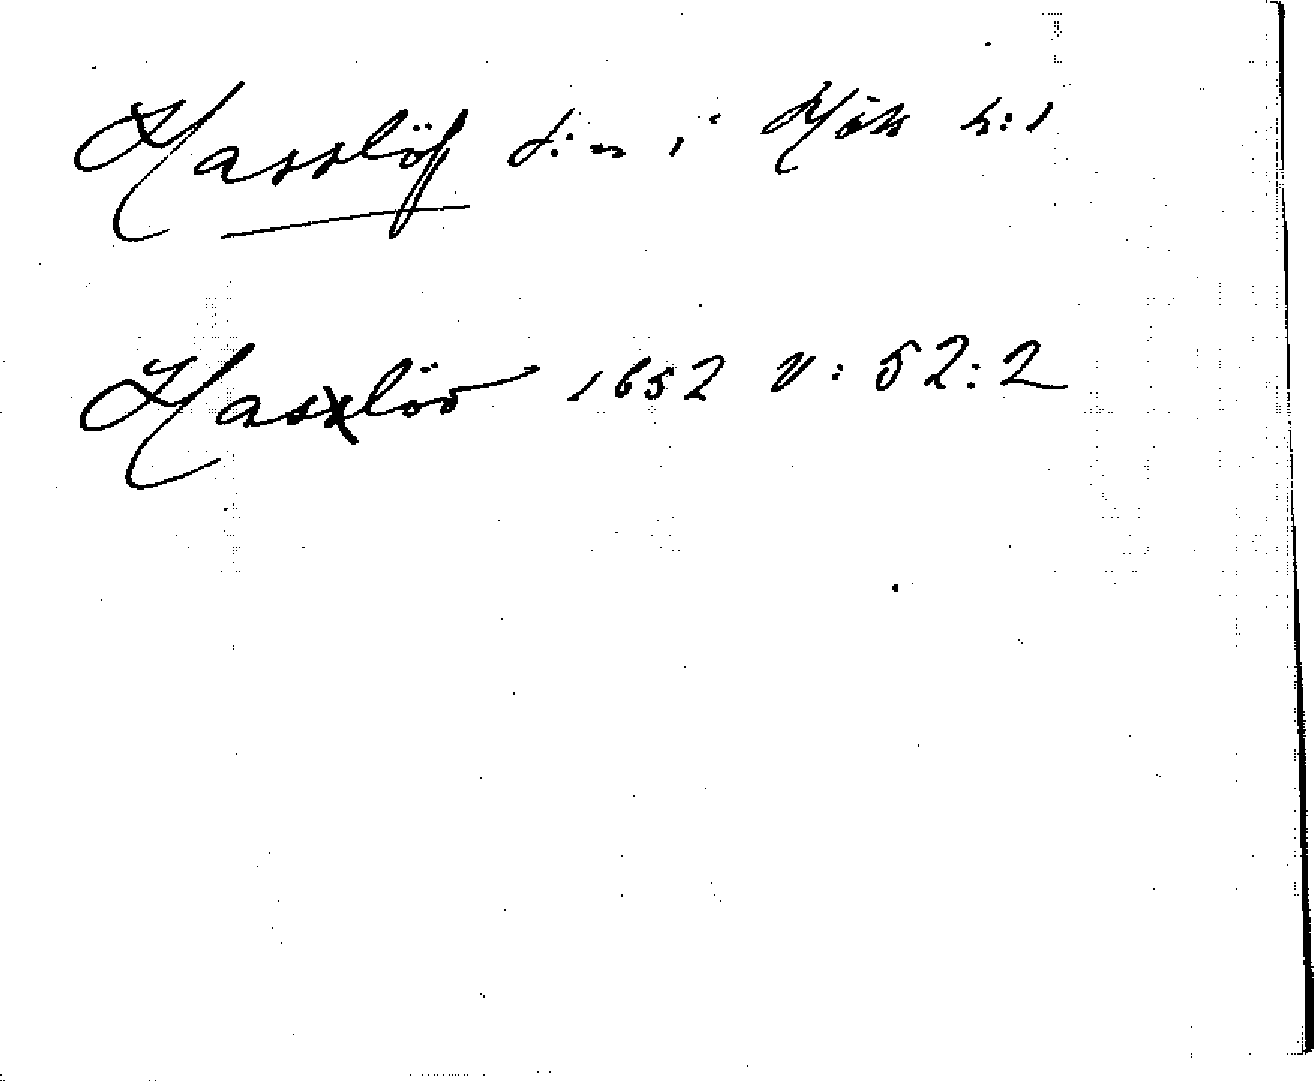 Hasslöf d:n i Hjäk h:d
Hasslöv 1652 V: 52:2